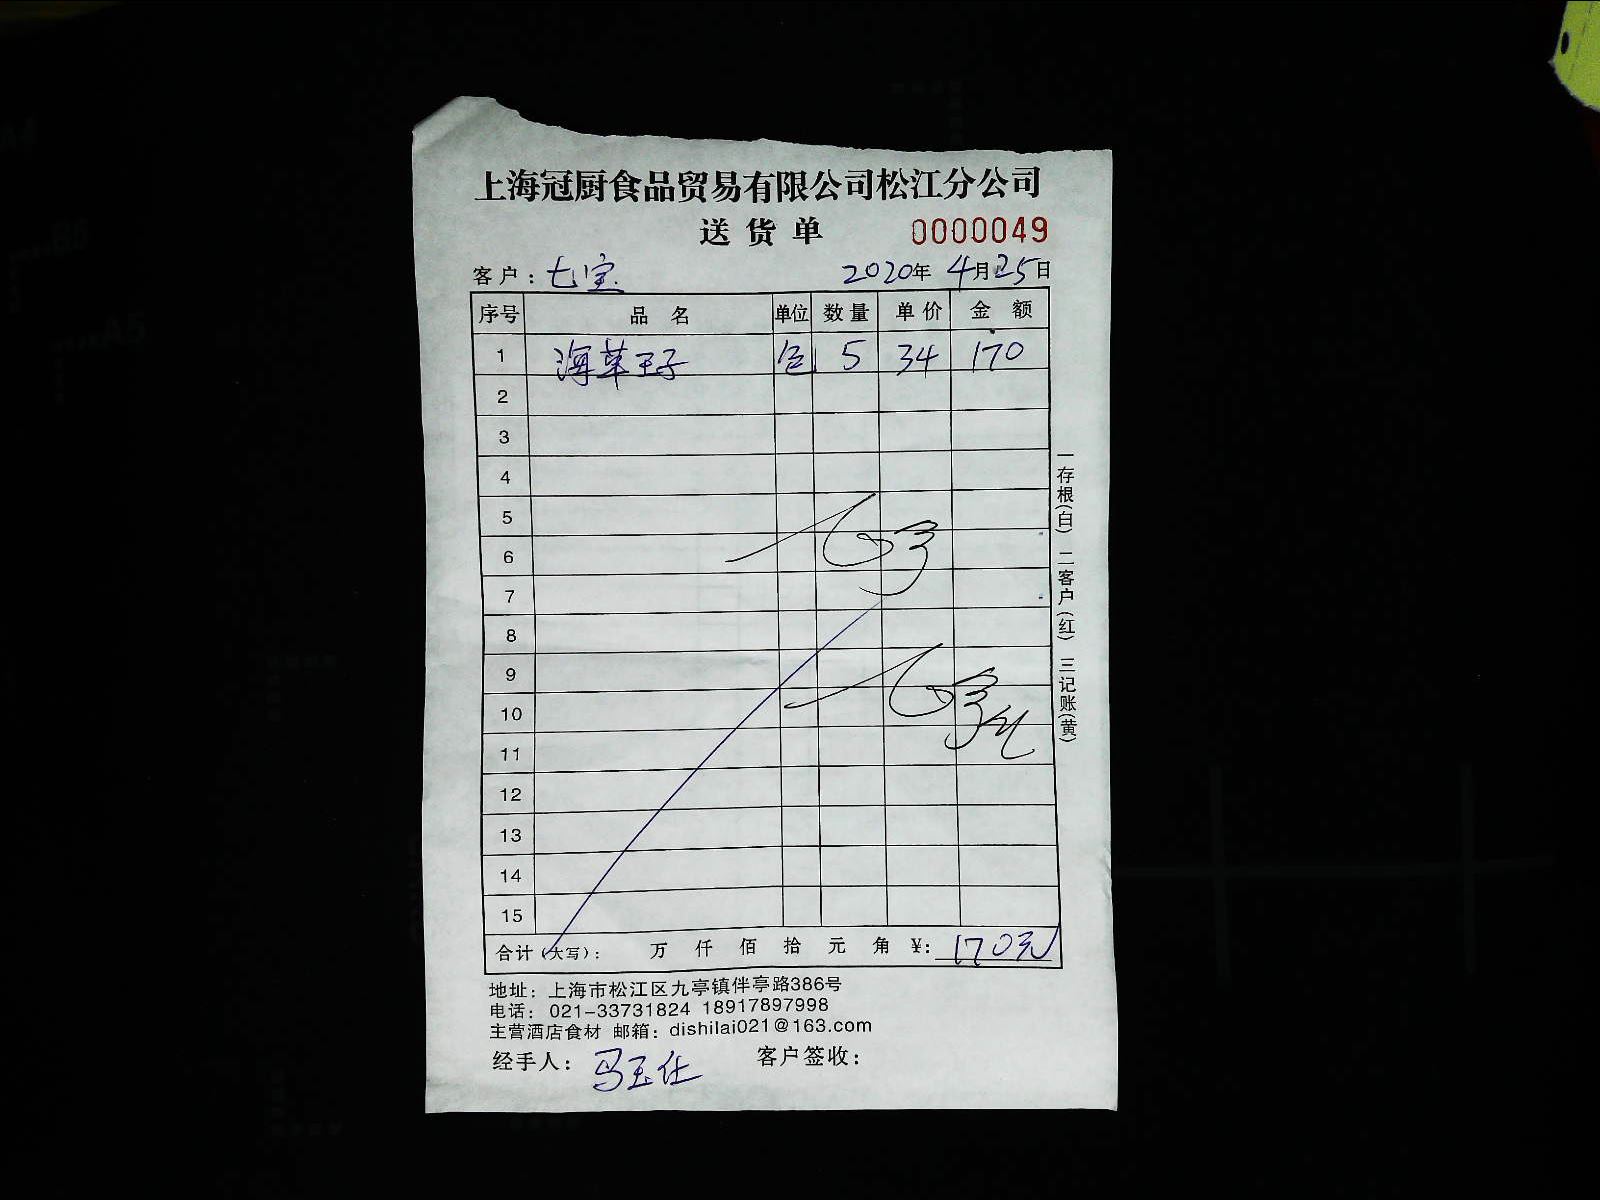 上海冠厨食品贸易有限公司松江分公司
送货单 0000049
客户：七宝 2020年4月25日
序号 品名 单位 数量 单价 金额
1 海草王子 包 5 34 170
2
3
4
5
6
7
8
9
10
11
12
13
14
15
合计（大写）： 万 仟 佰 拾 元 角 ¥：170元
地址：上海市松江区九亭镇伴亭路386号
电话：021-33731824 18917897998
主营酒店食材 邮箱：dishilai021@163.com
经手人：马玉仕 客户签收：
一存根(白) 二客户(红) 三记账(黄)